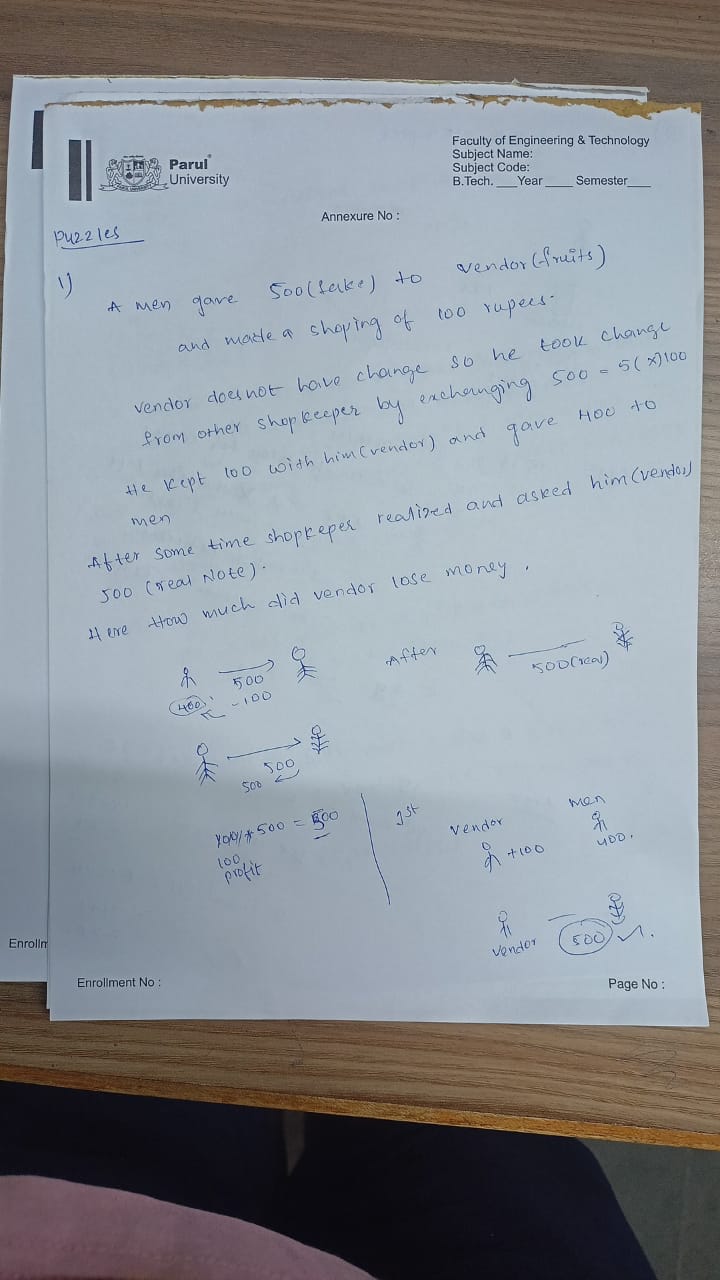 Parul
University
Faculty of Engineering & Technology
Subject Name:
Subject Code:
B.Tech. ___Year ____ Semester____
Annexure No :
Puzzles
1)
A men gave 500(fake) to vendor(fruits)
and made a shoping of 100 rupees.
vendor doesnot have change so he took change
from other shopkeeper by exchanging 500 = 5(x)100
He kept 100 with him(vendor) and gave 400 to
men
After some time shopkeper realized and asked him(vendor)
500 (real Note).
Here How much did vendor lose money.
500
400
-100
After
500(real)
500
500
500 = 500
100
profit
1st
vendor
+100
men
400.
vendor
500
Enrollm
Enrollment No :
Page No :